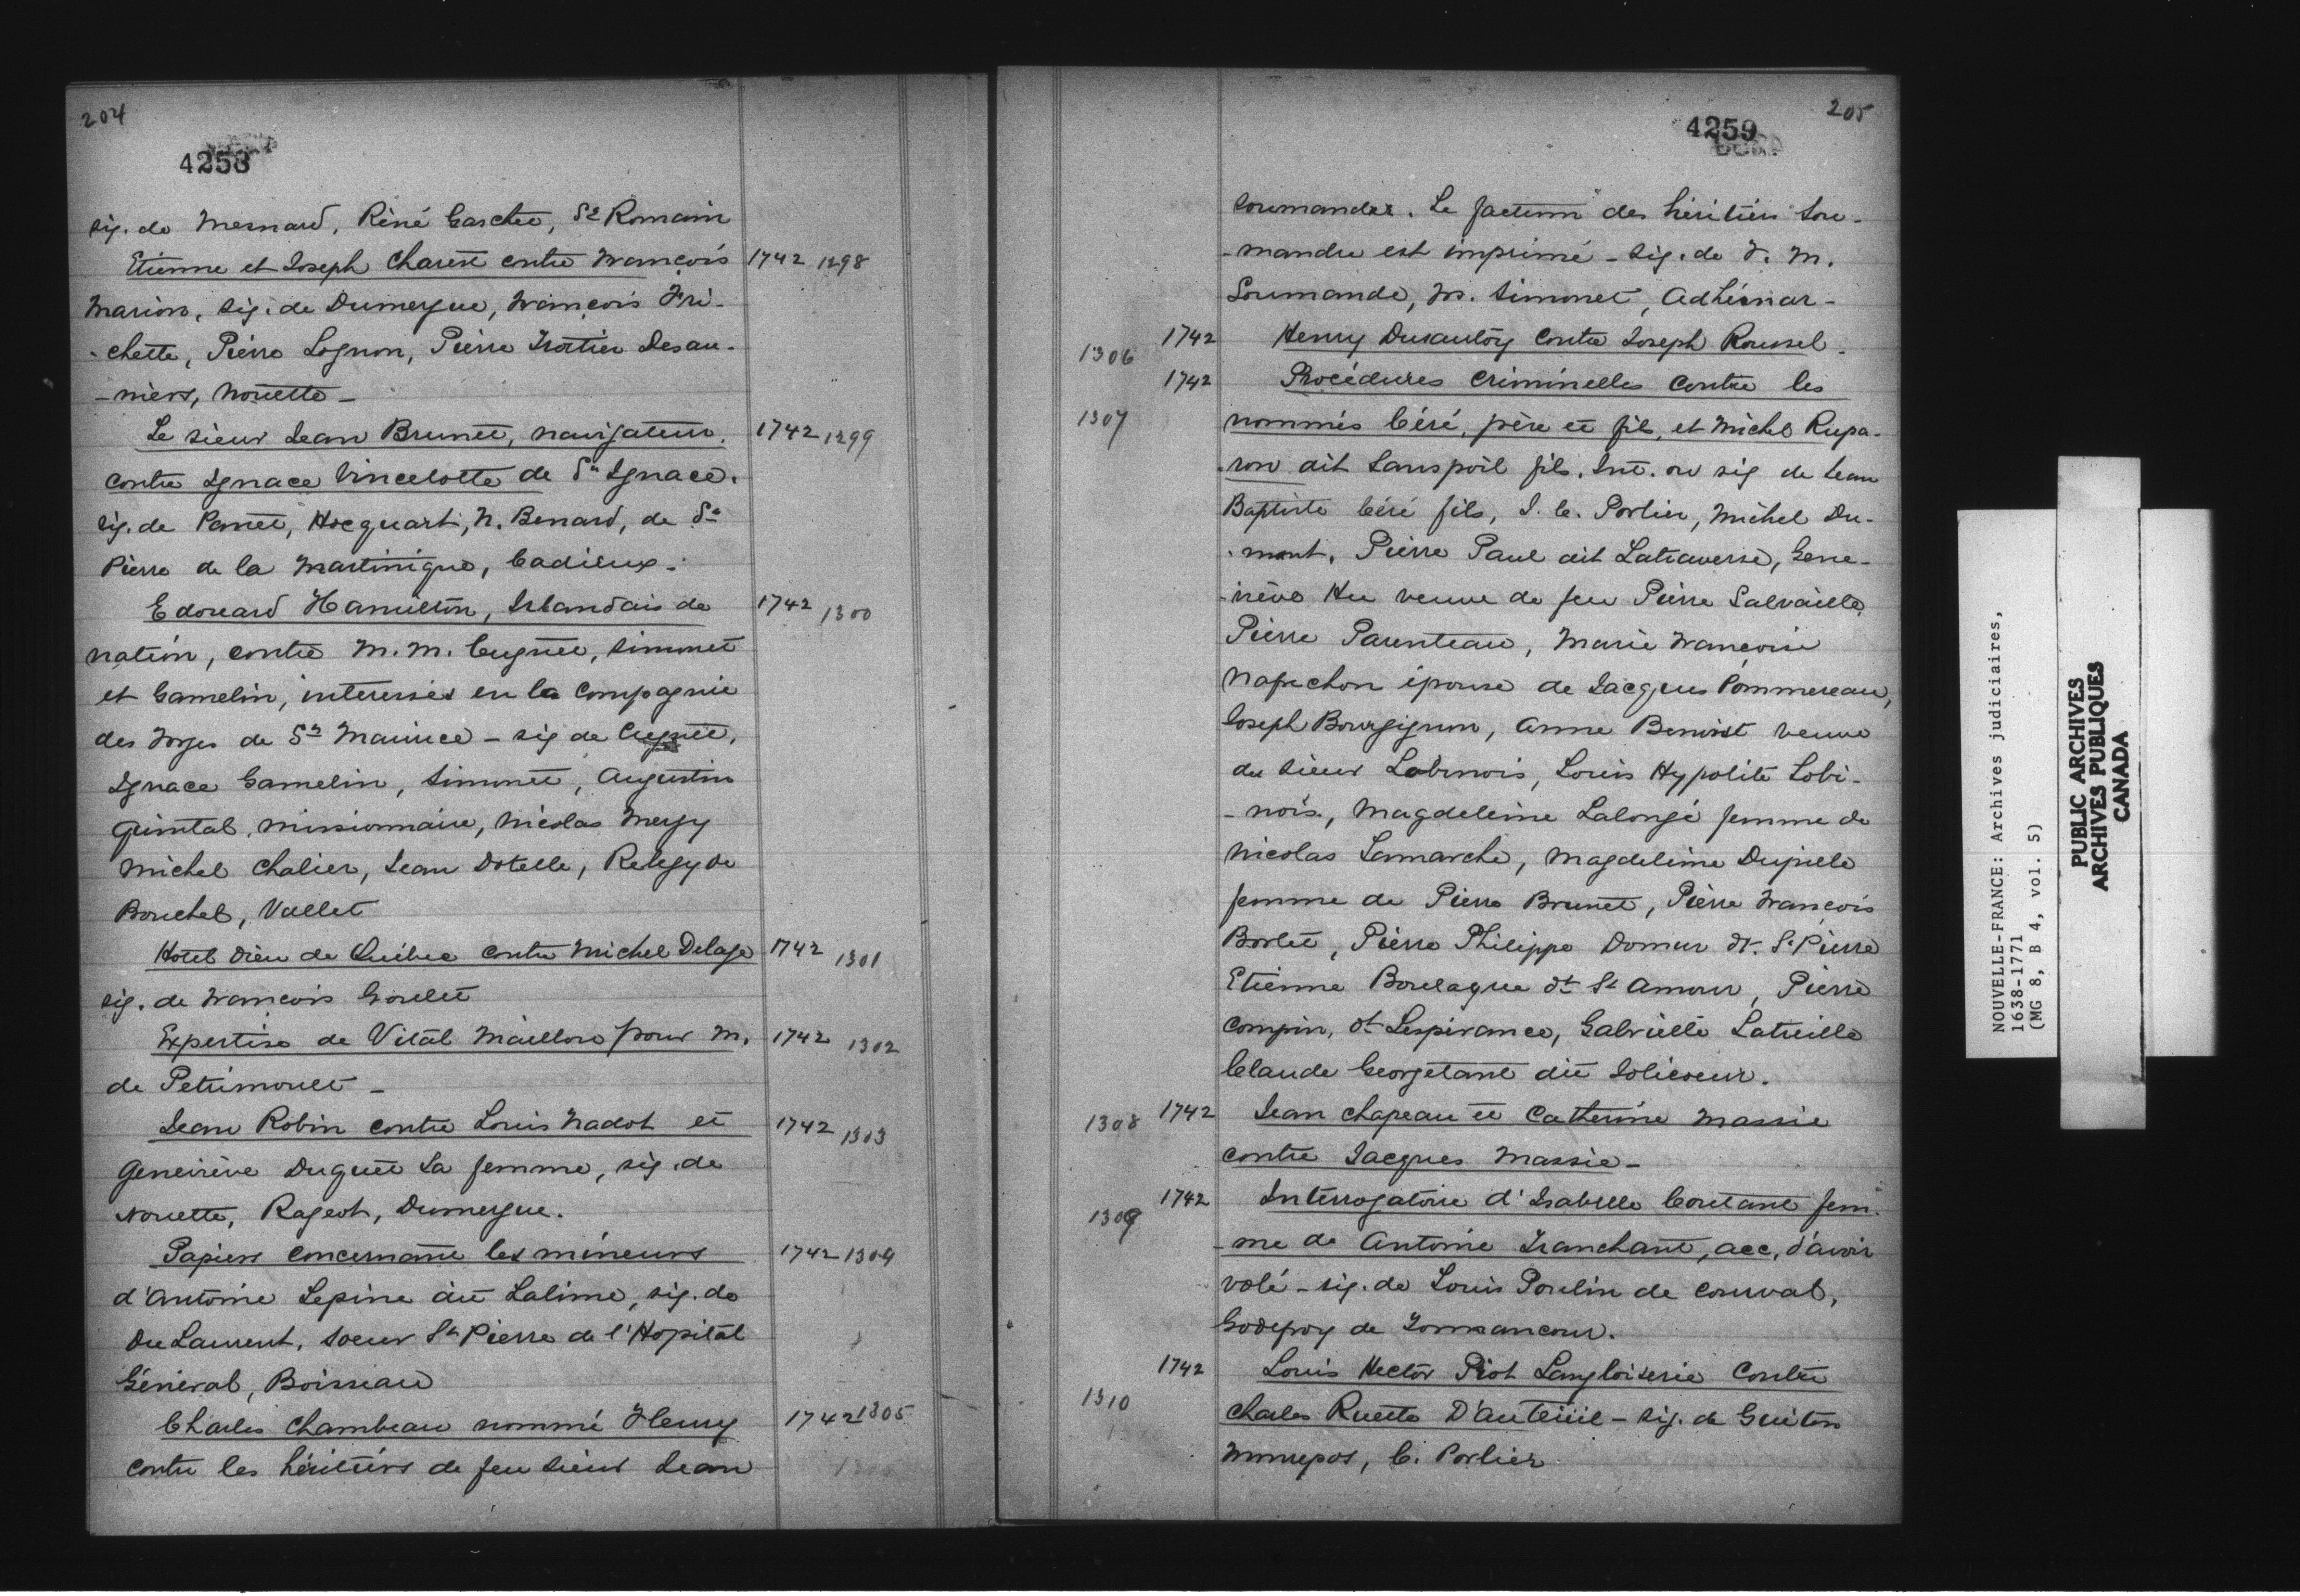 204
4258
sig. de Mesnard, Réné Gaschet, St Romain
Etienne et Joseph Charest contre François 1742 1298
Marion, sig. de Dumergue, François Fri-
-chette, Pierre Lognon, Pierre Trotier Desau-
-niers, Nouette -
Le sieur Jean Brunet, navigateur, 1742 1299
contre Ignace Vincelotte de St Ignace.
sig. de Panet, Hocquart, N. Benard, de St
Pierre de la Martinique, Cadieux.
Edouard Hamilton, Irlandais de 1742 1300
nation, contre M. M. Cugnet, Simonet
et Gamelin, interessés en la Compagnie
des Forges de St Maurice - sig de Cugnet,
Ignace Gamelin, Simonet, Augustin
Quintal, missionnaire, Nicolas Mergy
Michel Chalier, Jean Dotelle, de
Bouchel, Vallet
Hotel Dieu de Québec contre Michel Delage 1742 1301
sig. de François Goulet
Expertise de Vital Maillou pour M. 1742 1302
de Petrimoult -
Jean Robin contre Louis Nadot et 1742 1303
Geneviève Duguet sa femme, sig. de
Nouette, Rageot, Dumergue.
Papiers concernant les mineurs 1742 1304
d'Antoine Lepine dit Lalime, sig. de
Du Laurent, soeur St Pierre de l'Hopital
Général, Boisseau
Charles Chambeau nommé Henry 1742 1305
contre les héritiers de feu sieur Jean
205
4259
Soumandre. Le factum des héritiers Sou-
-mandre est imprimé - sig. de F. M.
Soumande, M. Simonet, Adhémar -
1306 1742 Henry Dusautoy contre Joseph Roussel.
1307 1742 Procédures criminelles contre les
nommés Céré, père et fils, et Michel Rupa-
-ron dit Sanspoil fils. Int. ou sig de Jean
Baptiste Céré fils, J. C. Porlier, Michel Du-
-mont, Pierre Paul dit Latraverse, Gene-
-viève Hu veuve de feu Pierre Salvaille,
Pierre Parenteau, Marie Françoise
Napechon épouse de Jacques Pommereau,
Joseph Bourgignon, Anne Benoist veuve
du sieur Lobinois, Louis Hypolite Lobi-
-nois, Magdeleine Lalongé femme de
Nicolas Lamarche, Magdeleine
femme de Pierre Brunet, Pierre François
Borlet, Pierre Philippe Domur dt St Pierre
Etienne Boulague dt St Amour, Pierre
Compin, dt Lespérance, Gabrielle Latreille
Claude Georgetant dit Solicoeur.
1308 1742 Jean Chapeau et Catherine Massie
contre Jacques Massie -
1309 1742 Interrogatoire d'Isabelle Coutant fem-
-me de Antoine Tranchant, acc. d'avoir
volé - sig. de Louis Poulin de Courval,
Godefroy de Tonnancour.
1310 1742 Louis Hector Piot Langloiserie contre
Charles Ruette D'Auteüil - sig. de Guiton
Monrepos, C. Porlier
NOUVELLE-FRANCE: Archives judiciaires,
1638-1771
(MG 8, B 4, vol. 5)
PUBLIC ARCHIVES
ARCHIVES PUBLIQUES
CANADA